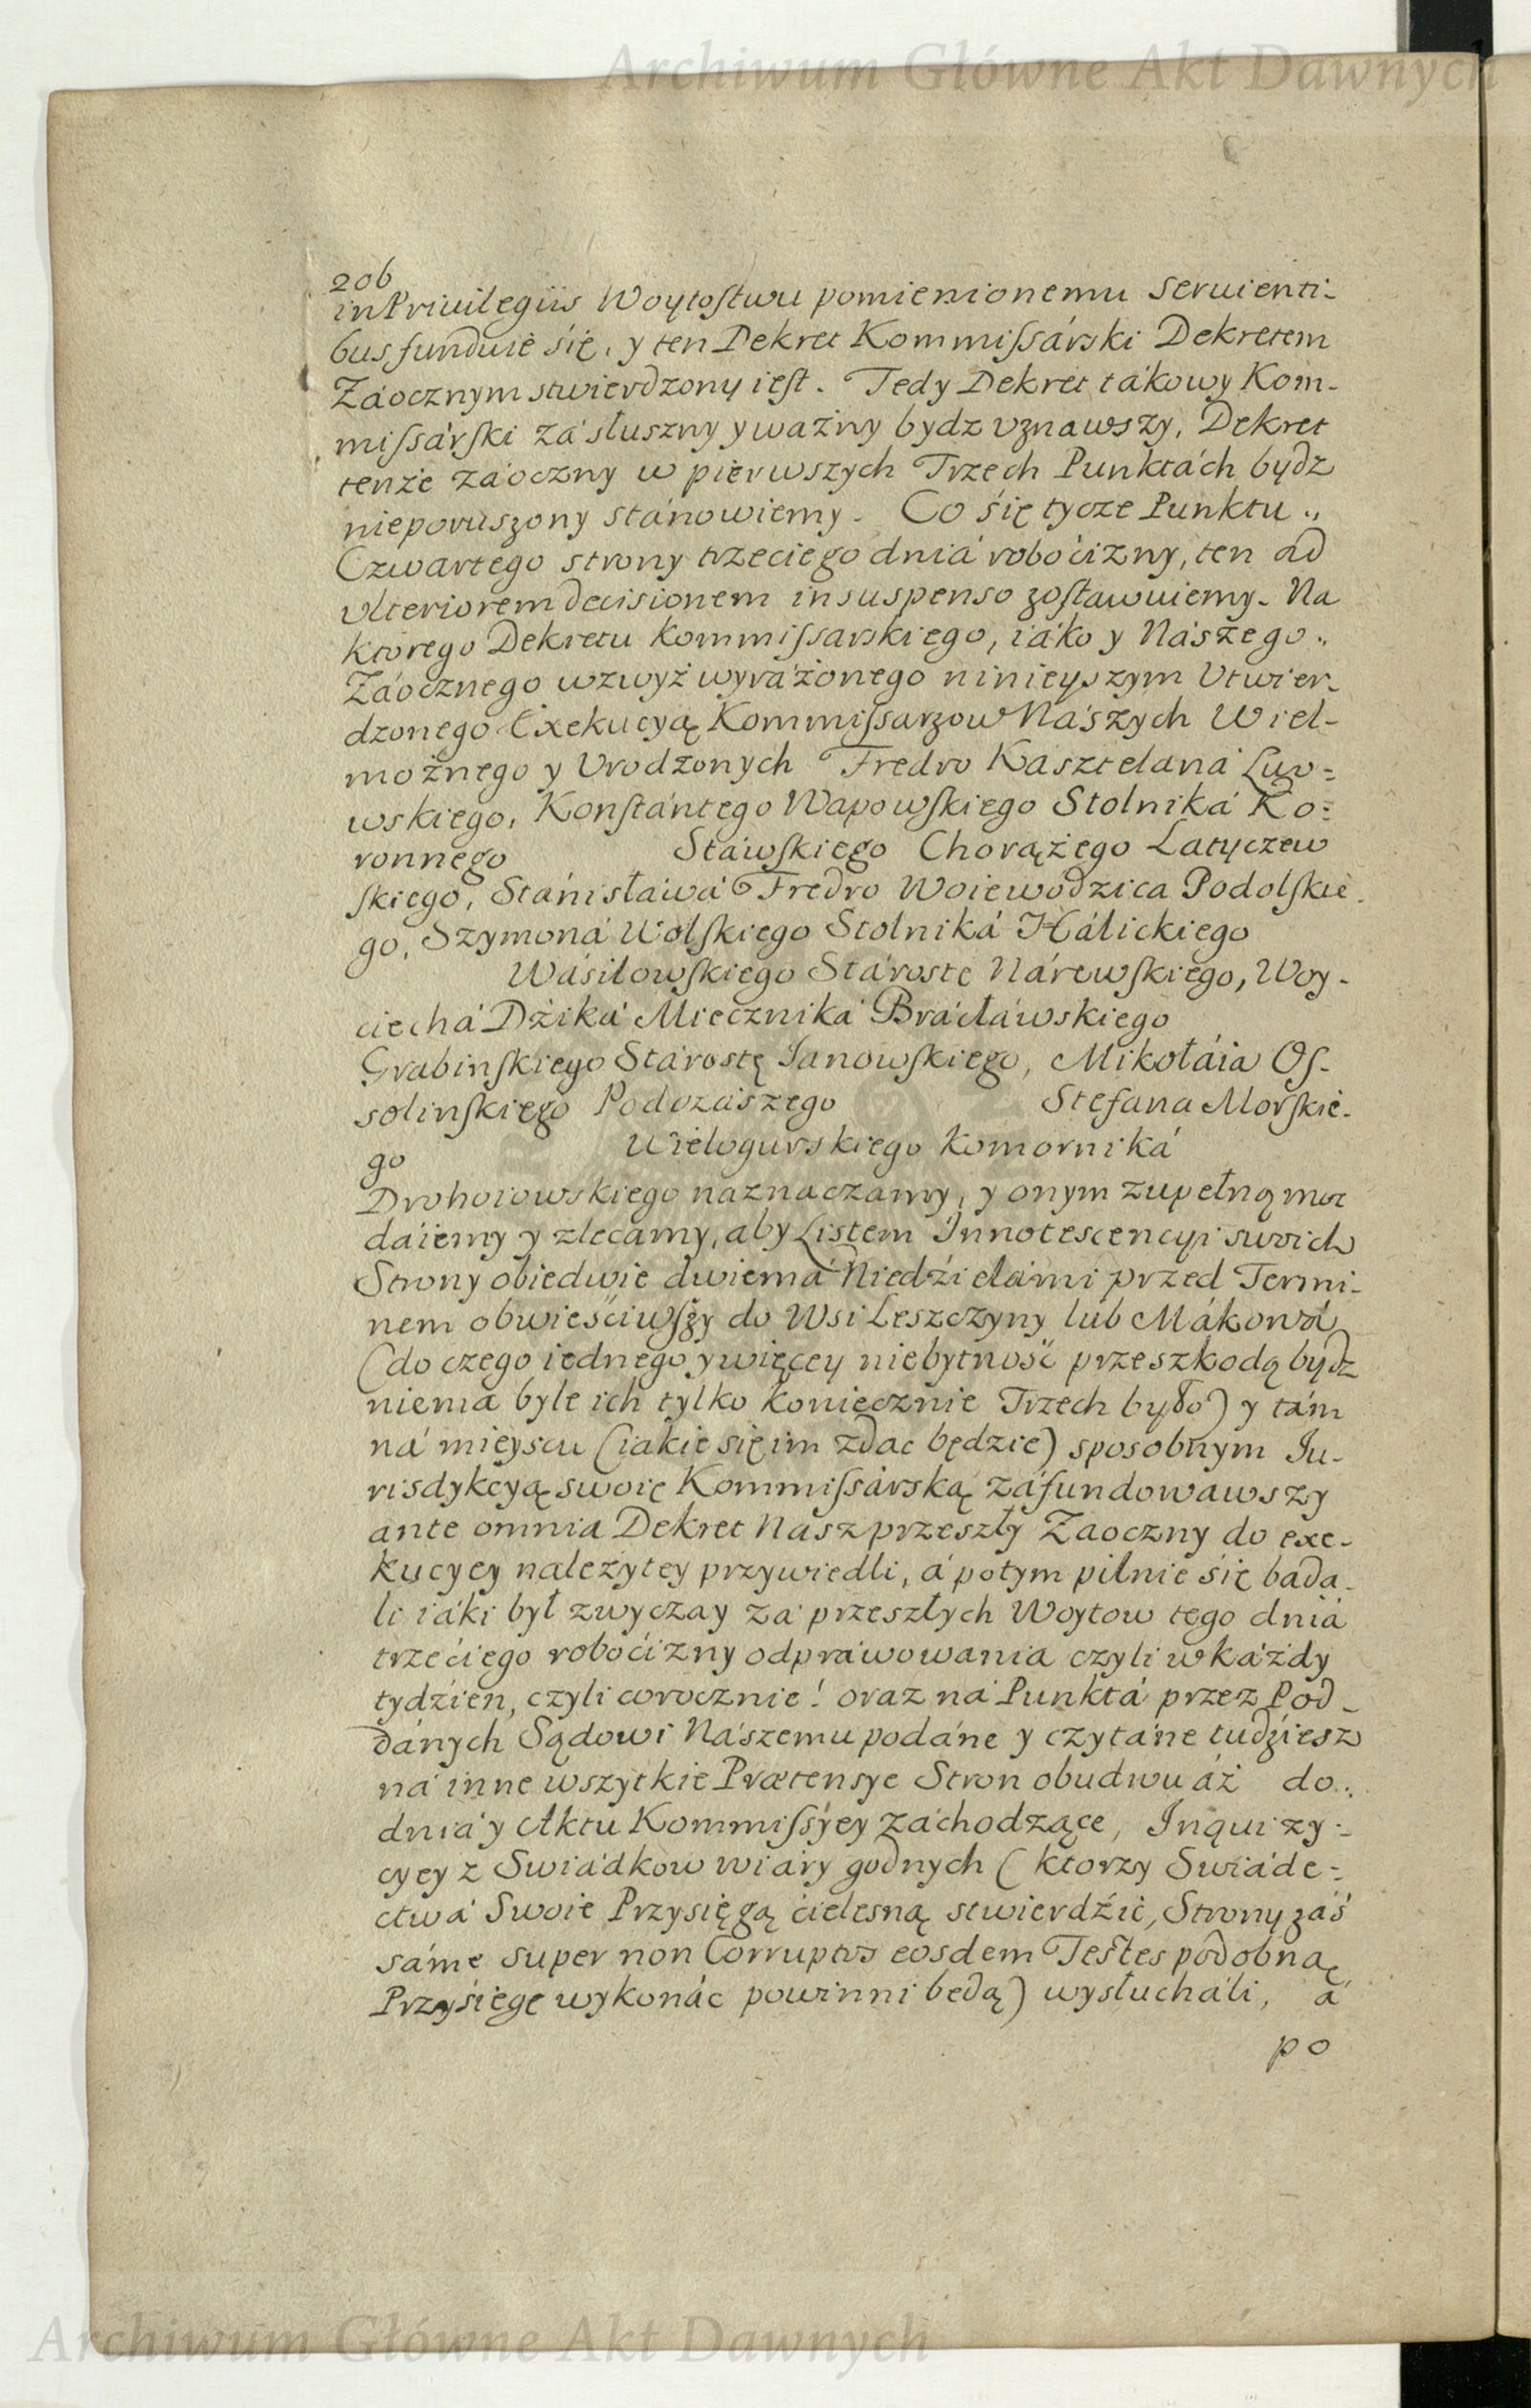 Archiwum Główne Akt Dawnych
206
in Privilegiis Woytostwu pomienionemu servienti-
bus funduie śię, y ten Dekret Kommissárski Dekretem
Záocznym stwierdzony iest. Tedy Dekret tákowy Kom-
missárski zá słuszny y ważny bydz vznawszy, Dekret
tenże záoczny w pierwszych Trzech Punktách bydz
nieporuszony stánowiemy. Co śię tycze Punktu
Czwartego strony trzeciego dniá robocizny, ten ad
vlteriorem decisionem in suspenso zostawuiemy. Na
ktorego Dekretu Kommissarskiego, iáko y Nászego
Záocznego wzwyż wyráżonego ninieyszym Utwier-
dzonego Exekucyą Kommissarzow Nászych Wiel-
możnego y Urodzonych Fredro Kasztelaná Lwo=
wskiego, Konstántego Wapowskiego Stolniká Ko=
ronnego Stáwskiego Chorążego Latyczew
skiego, Stánisławá Fredro Woiewodzica Podolskie-
go, Szymoná Wolskiego Stolniká Hálickiego
Wásilowskiego Stároste Nárewskiego, Woy-
ciechá Dżiká Miecznika Brácłáwskiego
Grabinskiego Stárostę Ianowskiego, Mikołáia Os-
solinskiego Podczászego Stefana Morskie-
go Wielogurskiego Komorniká
Drohoiowskiego naznaczamy, y onym zupełną moc
dáiemy y zlecamy, aby Listem Innotescencyi swoich
Strony obiedwie dwiemá Niedźielámi przed Termi-
nem obwieściwszy do Wsi Leszczyny lub Mákowá
(do czego iednego y więcey niebytność przeszkodą bydz
niema byle ich tylko koniecznie Trzech było) y tám
ná mieyscu (iakie się im zdac będzie) sposobnym Iu-
risdykcyą swoię Kommissárską záfundowawszy
ante omnia Dekret Nasz przeszły Zaoczny do exe-
kucyey należytey przywiedli, á potym pilnie śię bada-
li iáki był zwyczay zá przeszłych Woytow tego dniá
trzeciego robocizny odpráwowania czyli w káżdy
tydzien, czyli corocznie! oraz ná Punktá przez Pod-
dánych Sądowi Nászemu podáne y czytáne tudźiesz
ná inne wszytkie Prætensye Stron obudwu áż do
dniá y Aktu Kommissyey záchodzące, Inquizy-
cyey z Swiádkow wiáry godnych (ktorzy Swiáde=
ctwá Swoie Przysięgą cielesną stwierdźić, Strony záś
sáme super non Corruptos eosdem Testes podobną
Przysięgę wykonác powinni bedą) wysłucháli, á
po
Archiwum Główne Akt Dawnych